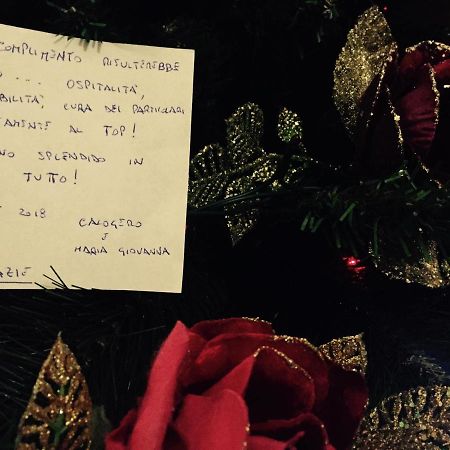 COMPLIMENTO RISULTEREBBE
... OSPITALITÀ,
BILITÀ, CURA DEI PARTICOLARI
AMENTE AL TOP!
NO SPLENDIDO IN
TUTTO!
2018 CALOGERO
E
MARIA GIOVANNA
AZIE